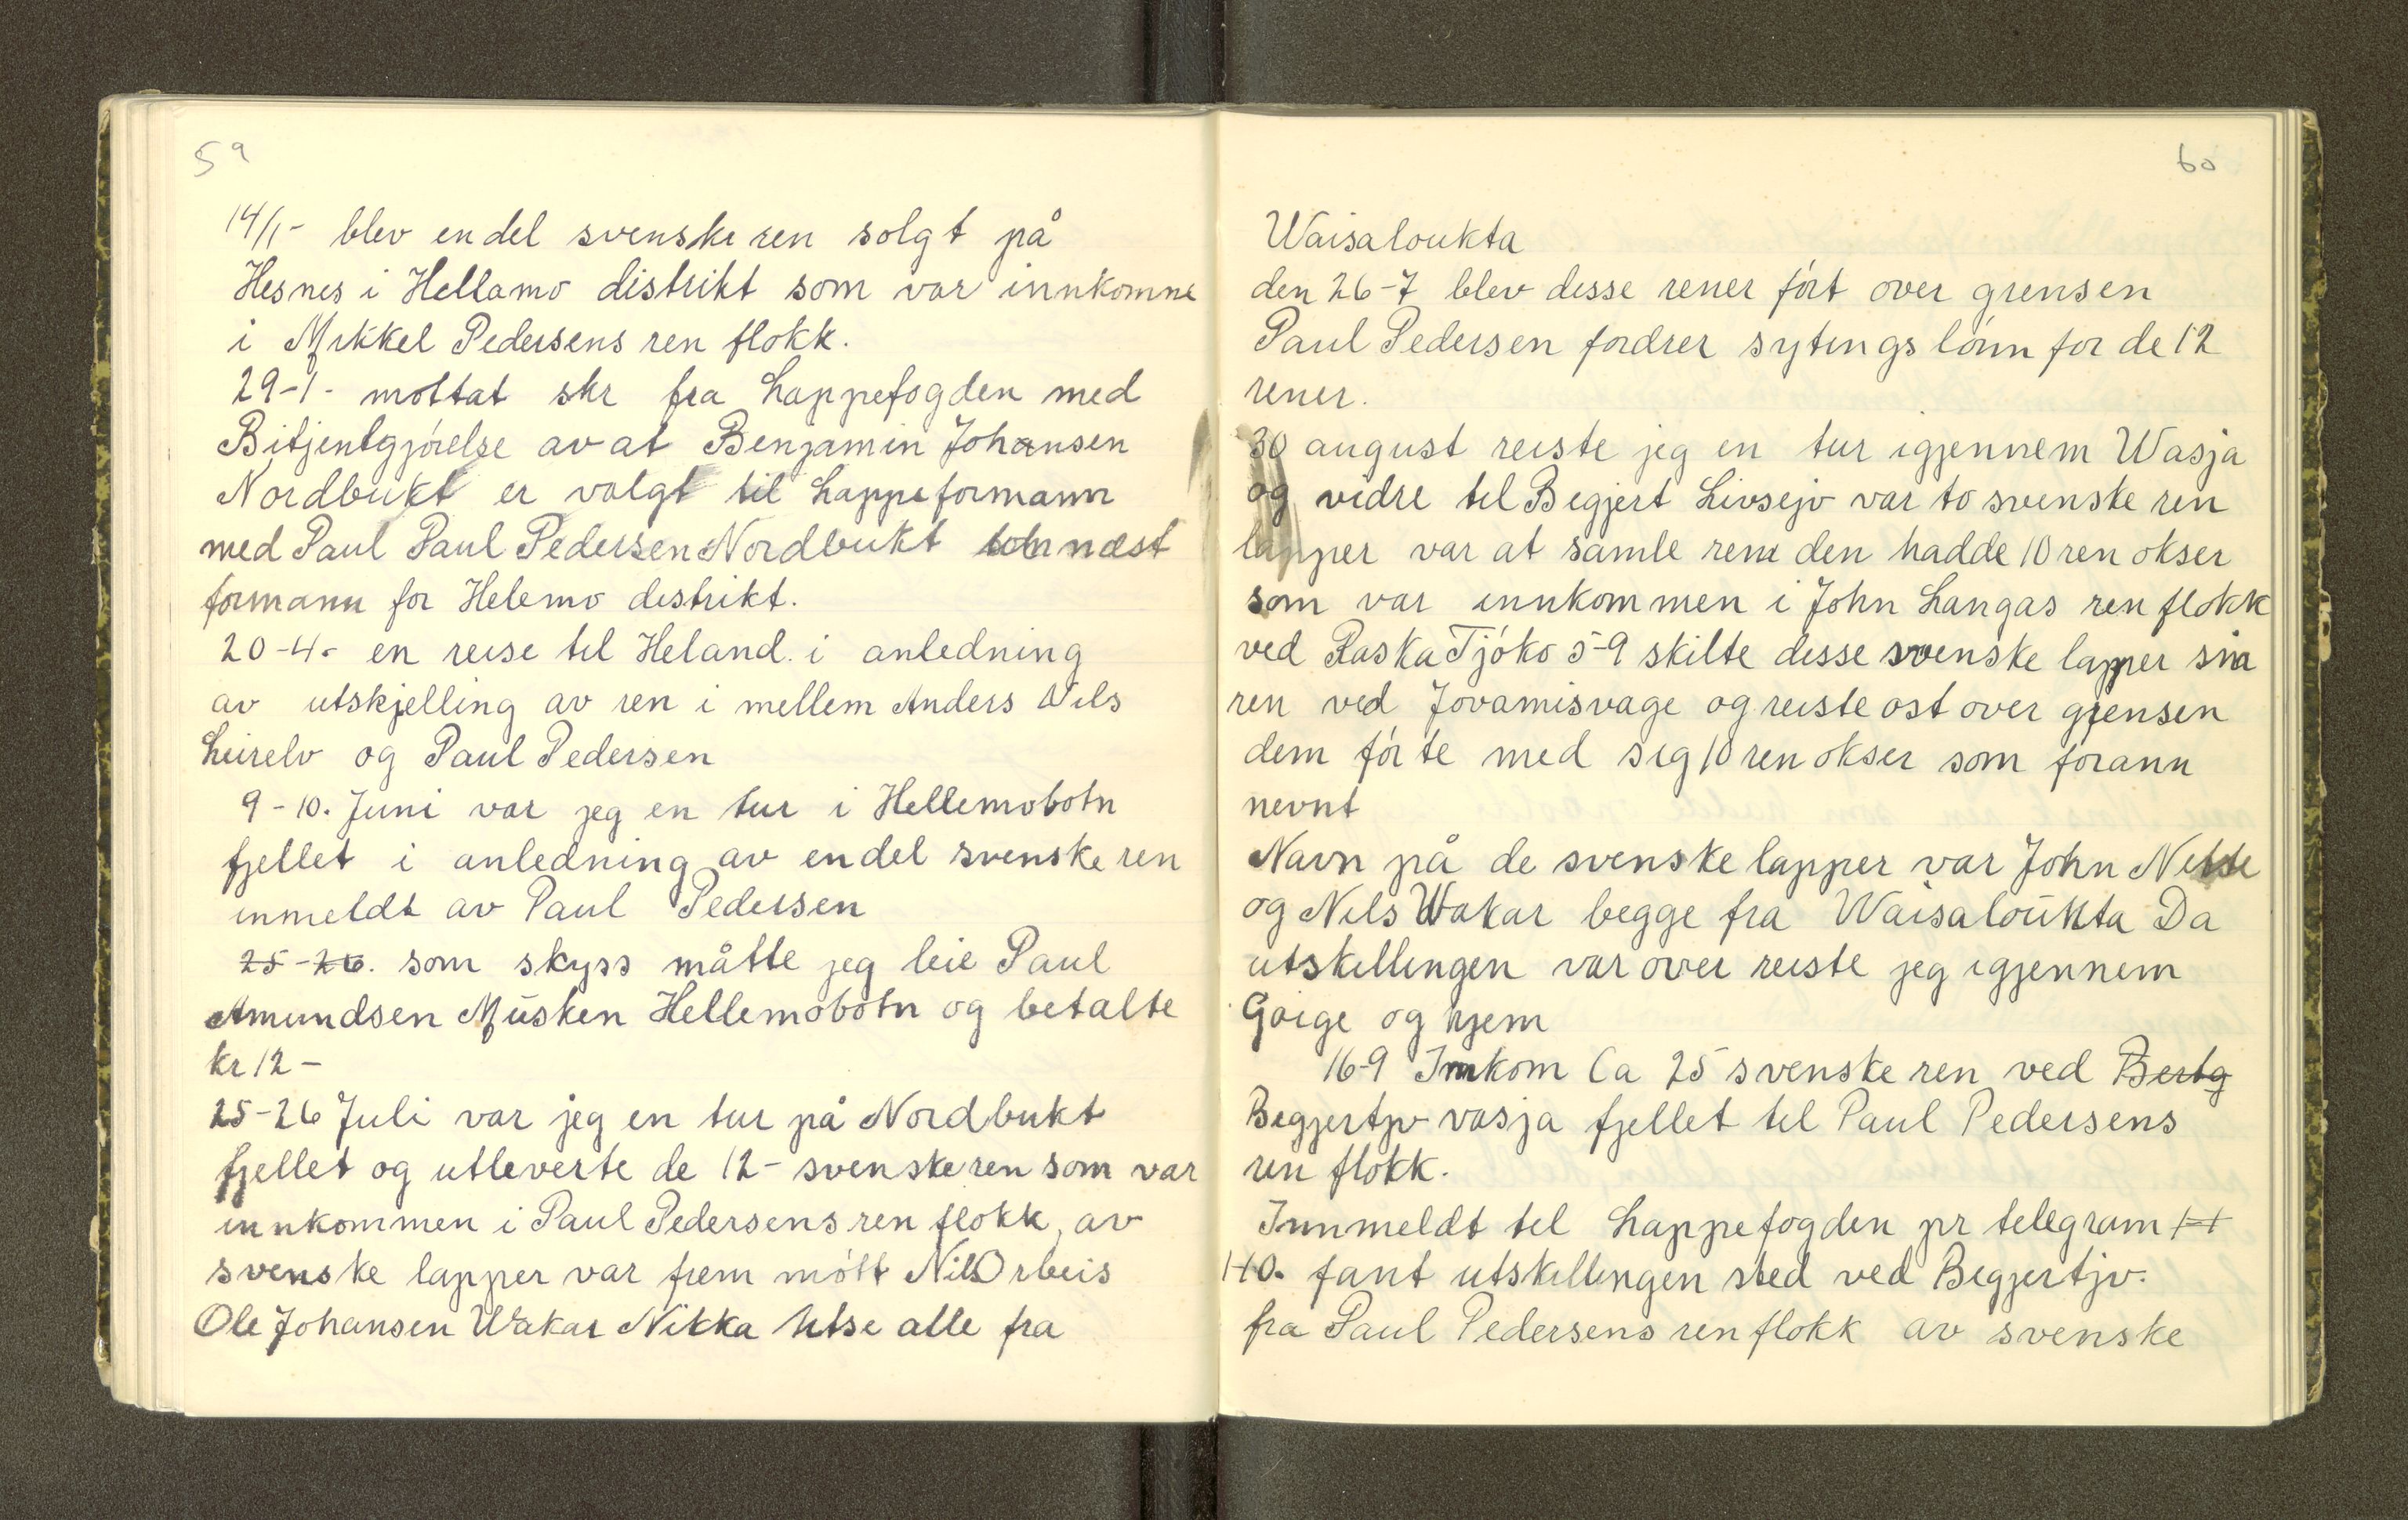 59
14/1- blev endel svenske ren solgt på
Hesnes i Hellamo distrikt som var innkomne
i Mikkel Pedersens ren flokk.
29-1- mottat skr fra Lappefogden med
Bitjentgjórelse av at Benjamin Johansen
Nordbukt er valgt til Lappeformann
med Paul Paul Pedersen Nordbukt som næst
formann for Helemo distrikt.
20-4- en reise til Heland. i anledning
av utskjelling av ren i mellem Anders Nils
Leirelv og Paul Pedersen
9-10. Juni var jeg en tur i Hellemobotn
fjellet i anledning av endel svenske ren
inmeldt av Paul Pedersen
25-26. som skyss måtte jeg leie Paul
Amundsen Musken Hellemobotn og betalte
kr 12-
25-26 Juli var jeg en tur på Nordbukt
fjellet og utleverte de 12- svenske ren som var
innkommen i Paul Pedersens ren flokk, av
svenske lapper var frem mótt Nils Orbeis
Ole Johansen Wakar Nikka Utse alle fra
60
Waisaloukta
den 26-7 blev desse rener fórt over grensen
Paul Pedersen fordrer sytings lónn for de 12
rener.
30 august reiste jeg en tur igjennem Wasja
og vidre til Begjert Livsejv var to svenske ren
lapper var at samle rene den hadde 10 ren okser
som var innkommen i John Langas ren flokk
ved Raska Tjóko 5-9 skilte desse svenske lapper sin
ren ved Jovamisvage og reiste ost over grensen
dem fórte med sig 10 ren okser som forann
nevnt
Navn på de svenske lapper var John
og Nils Wakar begge fra Waisaloukta Da
utskillingen var over reiste jeg igjennem
Goige og hjem
16-9 Innkom Ca 25 svenske ren ved Bertg
Begjertjv vasja fjellet til Paul Pedersens
ren flokk.
Innmeldt til Lappefogden pr telegram H
1-10. fant utskillingen sted ved Begjertjv.
fra Paul Pedersens ren flokk av svenske